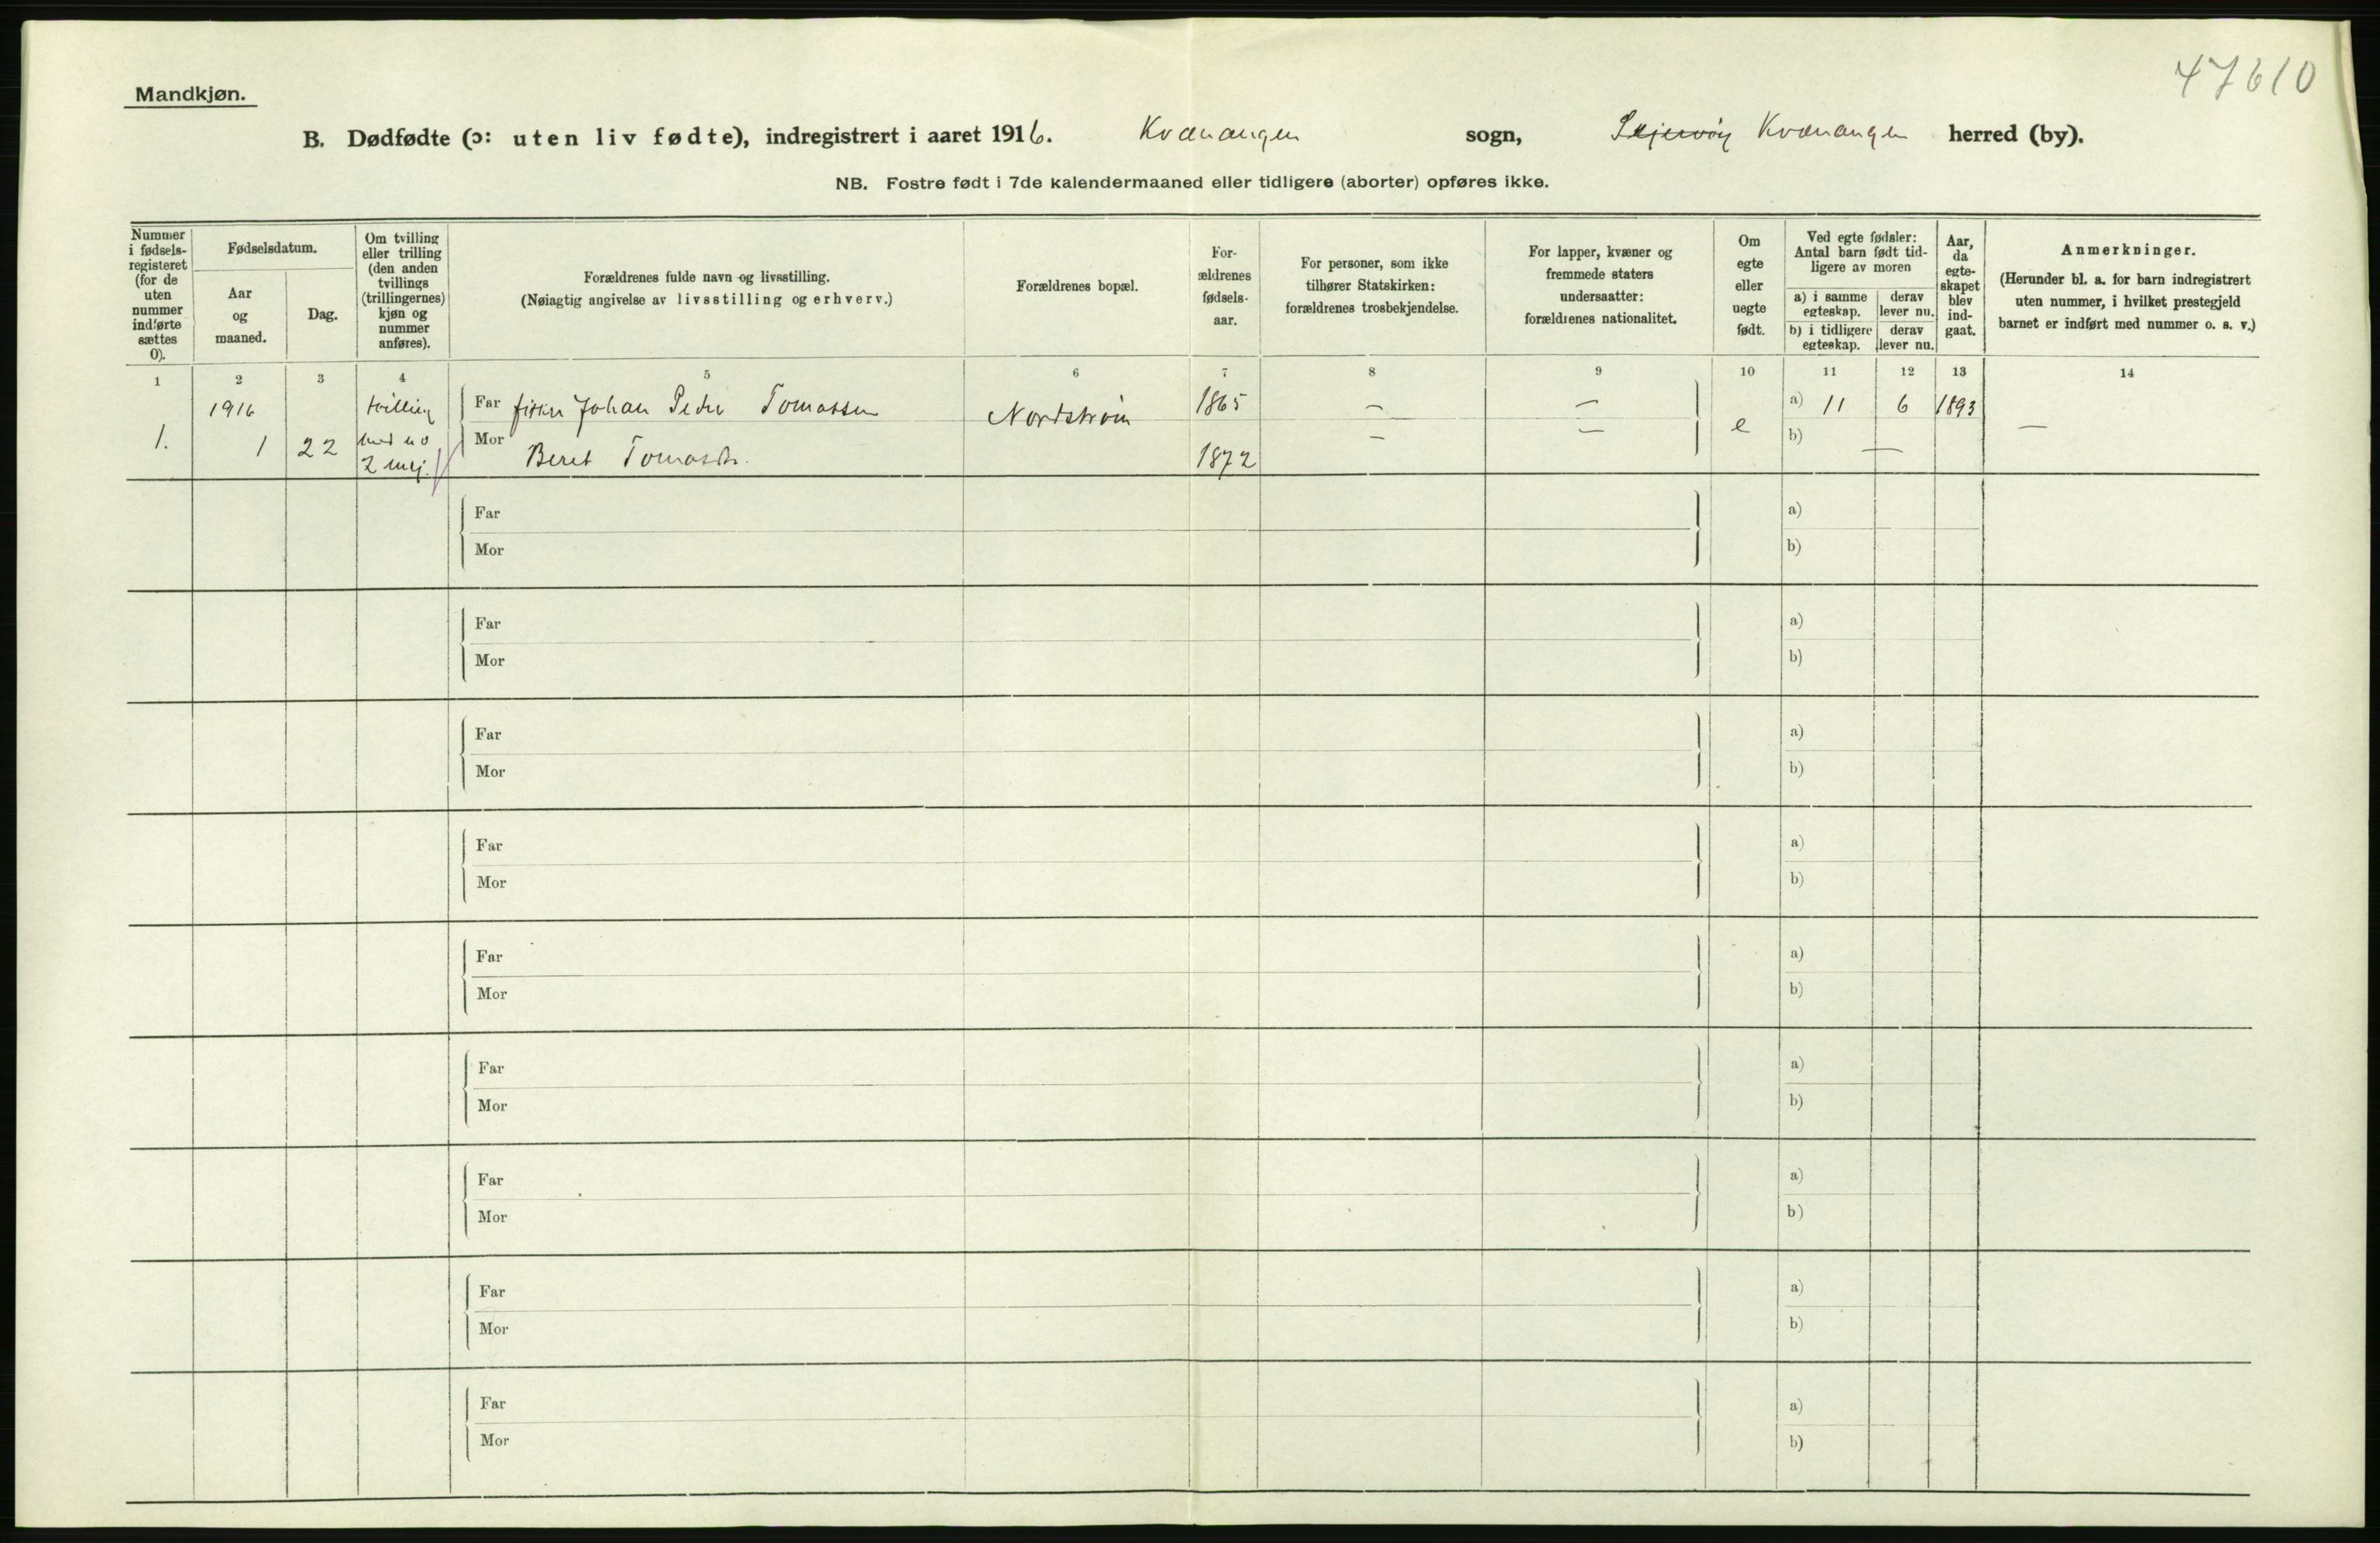 47610
Mandkjøn.
B. Dødfødte (ɔ: uten liv fødte), indregistrert i aaret 1916. Kvænangen sogn, Skjervöy Kvænangen herred (by).
NB. Fostre født i 7de kalendermaaned eller tidligere (aborter) opføres ikke.
Nummer i fødsels- registeret (for de uten nummer indførte sættes 0).
Fødselsdatum.
Aar og maaned.
Dag.
Om tvilling eller trilling (den anden tvillings (trillingernes) kjøn og nummer anføres).
Forældrenes fulde navn og livsstilling.
(Nøiagtig angivelse av livsstilling og erhverv.)
Forældrenes bopæl.
For- ældrenes fødsels- aar.
For personer, som ikke tilhører Statskirken: forældrenes trosbekjendelse.
For lapper, kvæner og fremmede staters undersaatter: forældrenes nationalitet.
Om egte eller uegte født.
Ved egte fødsler: Antal barn født tid- ligere av moren
a) i samme egteskap.
derav lever nu.
b) i tidligere egteskap.
derav lever nu.
Aar, da egte- skapet blev ind- gaat.
Anmerkninger.
(Herunder bl. a. for barn indregistrert uten nummer, i hvilket prestegjeld barnet er indført med nummer o. s. v.)
1 2 3 4 5 6 7 8 9 10 11 12 13 14
1916 tvilling Far fisker Johan Peder Tomassen Nordström 1865 — — a) 11 6 1893
1. 1 22 med no Mor — — e b) — —
2 Beret Tomasdtr. 1872
Far a)
Mor b)
Far a)
Mor b)
Far a)
Mor b)
Far a)
Mor b)
Far a)
Mor b)
Far a)
Mor b)
Far a)
Mor b)
Far a)
Mor b)
Far a)
Mor b)